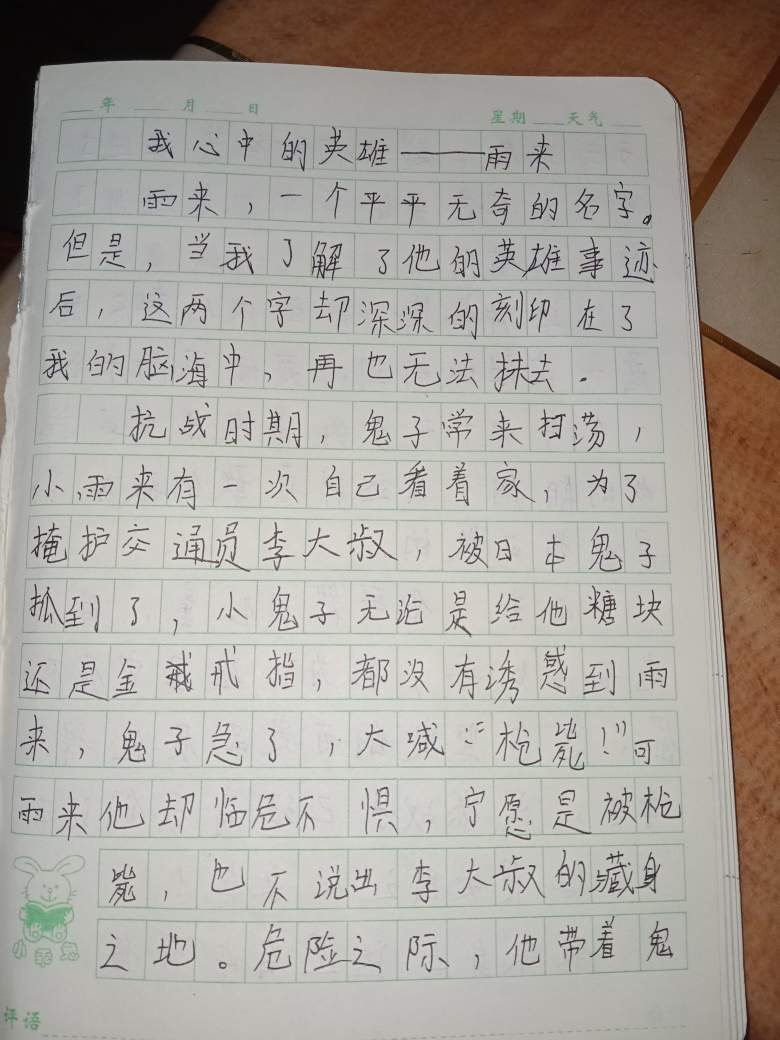 年 月 日 星期 天气
我心中的英雄——雨来
雨来，一个平平无奇的名字。
但是，当我了解了他的英雄事迹
后，这两个字却深深的刻印在了
我的脑海中，再也无法抹去。
抗战时期，鬼子常来扫荡，
小雨来有一次自己看着家，为了
掩护交通员李大叔，被日本鬼子
抓到了，小鬼子无论是给他糖块
还是金戒指，都没有诱惑到雨
来，鬼子急了，大喊：“枪毙！”可
雨来他却临危不惧，宁愿是被枪
毙，也不说出李大叔的藏身
之地。危险之际，他带着鬼
小乖兔
评语